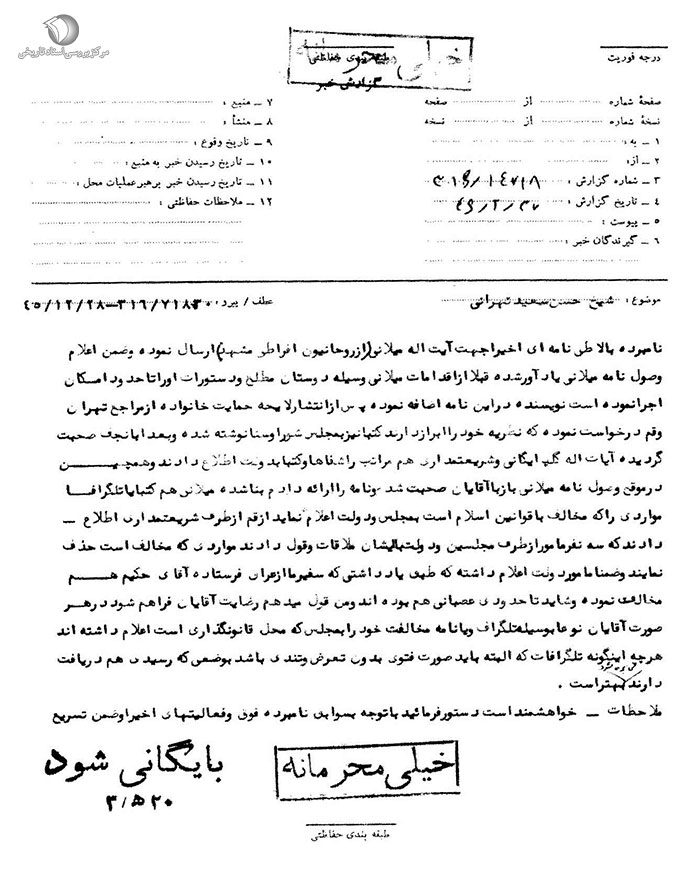 مرکز بررسی اسناد تاریخی
خیلی محرمانه
طبقه بندی حفاظتی
گزارش خبر
درجه فوریت
صفحهٔ شماره از صفحه
نسخهٔ شماره از نسخه
۱ ـ به :
۲ ـ از:
۳ ـ شماره گزارش : ۳۱۶/۱۴۷۱۸
۴ ـ تاریخ گزارش :
۵ ـ پیوست :
۶ ـ گیرندگان خبر :
۷ ـ منبع :
۸ ـ منشأ :
۹ ـ تاریخ وقوع :
۱۰ ـ تاریخ رسیدن خبر به منبع :
۱۱ ـ تاریخ رسیدن خبر برهبر عملیات محل :
۱۲ ـ ملاحظات حفاظتی :
موضوع : شیخ حسن سعید تهرانی
عطف / پیرو : ۳۱۶/۷۱۸۳۰ـ۴۵/۱۲/۲۸
نامبرده بالا طی نامه ای اخیرا جهت آیت اله میلانی (از روحانیون افراطی مشهد) ارسال نموده وضمن اعلام
وصول نامه میلانی یاد آور شده قبلا از اقدامات میلانی وسیله دوستان مطلع ودستورات اورا تا حدود امکان
اجرا نموده است نویسنده در این نامه اضافه نموده پس از انتشار لایحه حمایت خانواده از مراجع تهران
وقم درخواست نموده که نظریه خود را ابراز دارند کتبا نیز بمجلس شورا وسنا نوشته شده وبعد با نجف صحبت
گردیده آیات اله گلپایگانی وشریعتمداری هم مراتب را شفاها وکتبا بدولت اطلاع دادند وهمچنین
در موقع وصول نامه میلانی باز با آقایان صحبت شد ونامه را ارائه دادم بنا شده میلانی هم کتبا یا تلگرافا
مواردی را که مخالف با قوانین اسلام است بمجلس ودولت اعلام نماید از قم از طرف شریعتمداری اطلاع ـ
دادند که سه نفر مامور از طرف مجلسین ودولت با ایشان ملاقات وقول دادند مواردی که مخالف است حذف
نمایند وضمنا مامور دولت اعلام داشته که طبق یادداشتی که سفیر ما از عراق فرستاده آقای حکیم هم
مخالفت نموده وشاید تا حدودی عصبانی هم بوده اند ومن قول میدهم رضایت آقایان فراهم شود در هر
صورت آقایان نوعا بوسیله تلگراف ویا نامه مخالفت خود را بمجلس که محل قانونگذاری است اعلام داشته اند
هرچه اینگونه تلگرافات که البته باید صورت فتوی بدون تعرض وتندی باشد بوضعی که رسیدی هم دریافت
دارند بهتر است .
ملاحظات ـ خواهشمند است دستور فرمائید با توجه بسوابق نامبرده فوق وفعالیتهای اخیر او ضمن تسریع
خیلی محرمانه
بایگانی شود
طبقه بندی حفاظتی